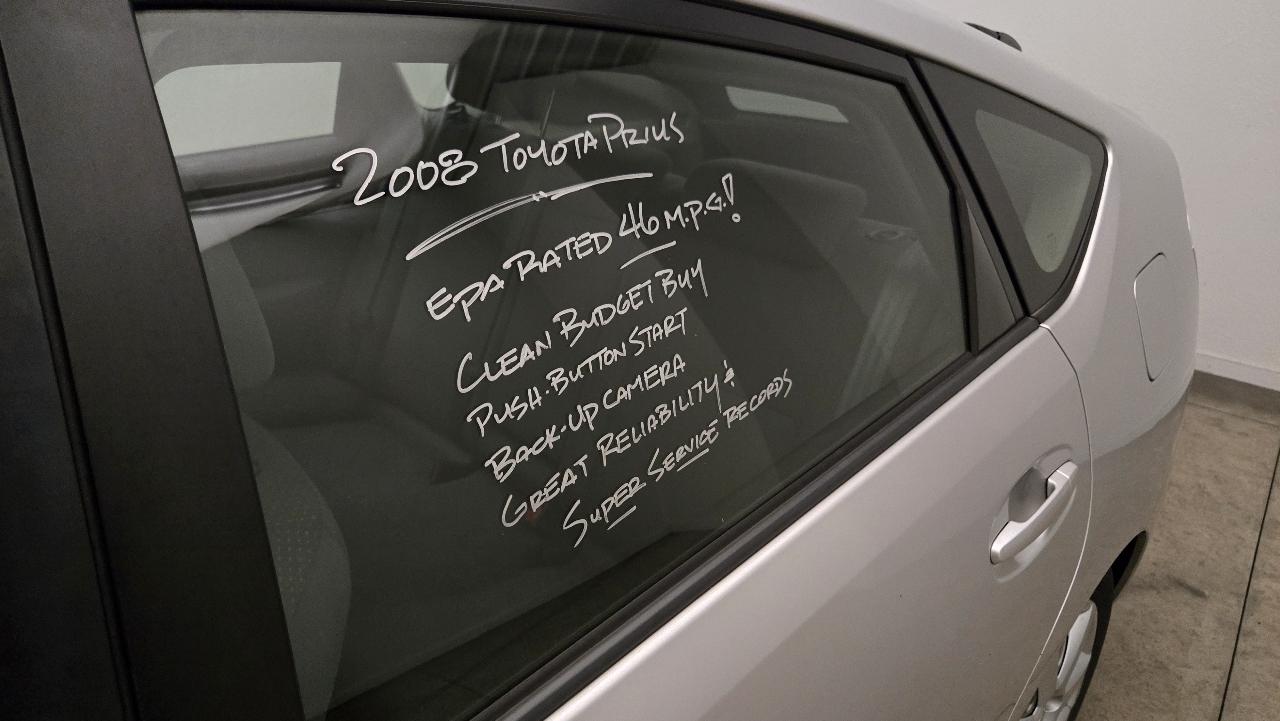 2008 TOYOTA PRIUS
EPA RATED 46 M.P.G.!
CLEAN BUDGET BUY
PUSH-BUTTON START
BACK-UP CAMERA
GREAT RELIABILITY &
SUPER SERVICE RECORDS